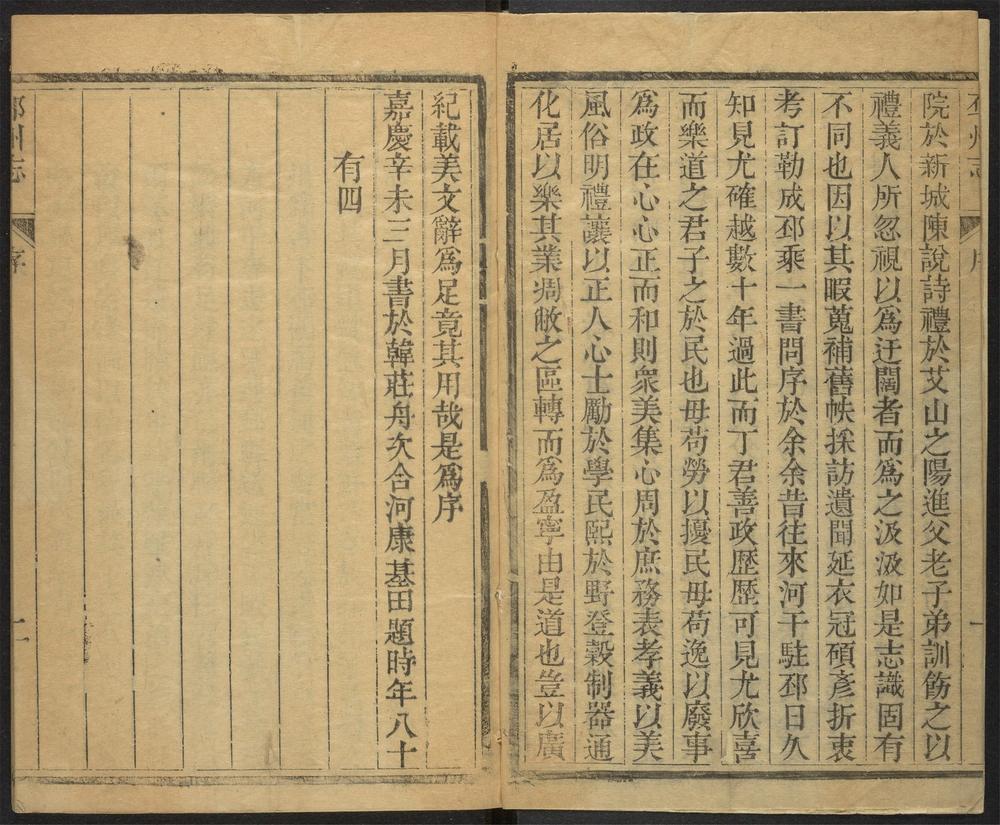 邳州志
序
一
院於新城陳說詩禮於艾山之陽進父老子弟訓飭之以
禮義人所忽視以爲迂闊者而爲之汲汲如是志識固有
不同也因以其暇蒐補舊帙採訪遺聞延衣冠碩彥折衷
考訂勒成邳乘一書問序於余余昔往來河干駐邳日久
知見尤確越數十年過此而丁君善政歷歷可見尤欣喜
而樂道之君子之於民也毋苟勞以擾民毋苟逸以廢事
爲政在心心正而和則衆美集心周於庶務表孝義以美
風俗明禮讓以正人心士勵於學民熙於野登穀制器通
化居以樂其業凋敝之區轉而爲盈寧由是道也豈以廣
紀載美文辭爲足竟其用哉是爲序
嘉慶辛未三月書於韓莊舟次合河康基田題時年八十
有四
邳州志
序
二